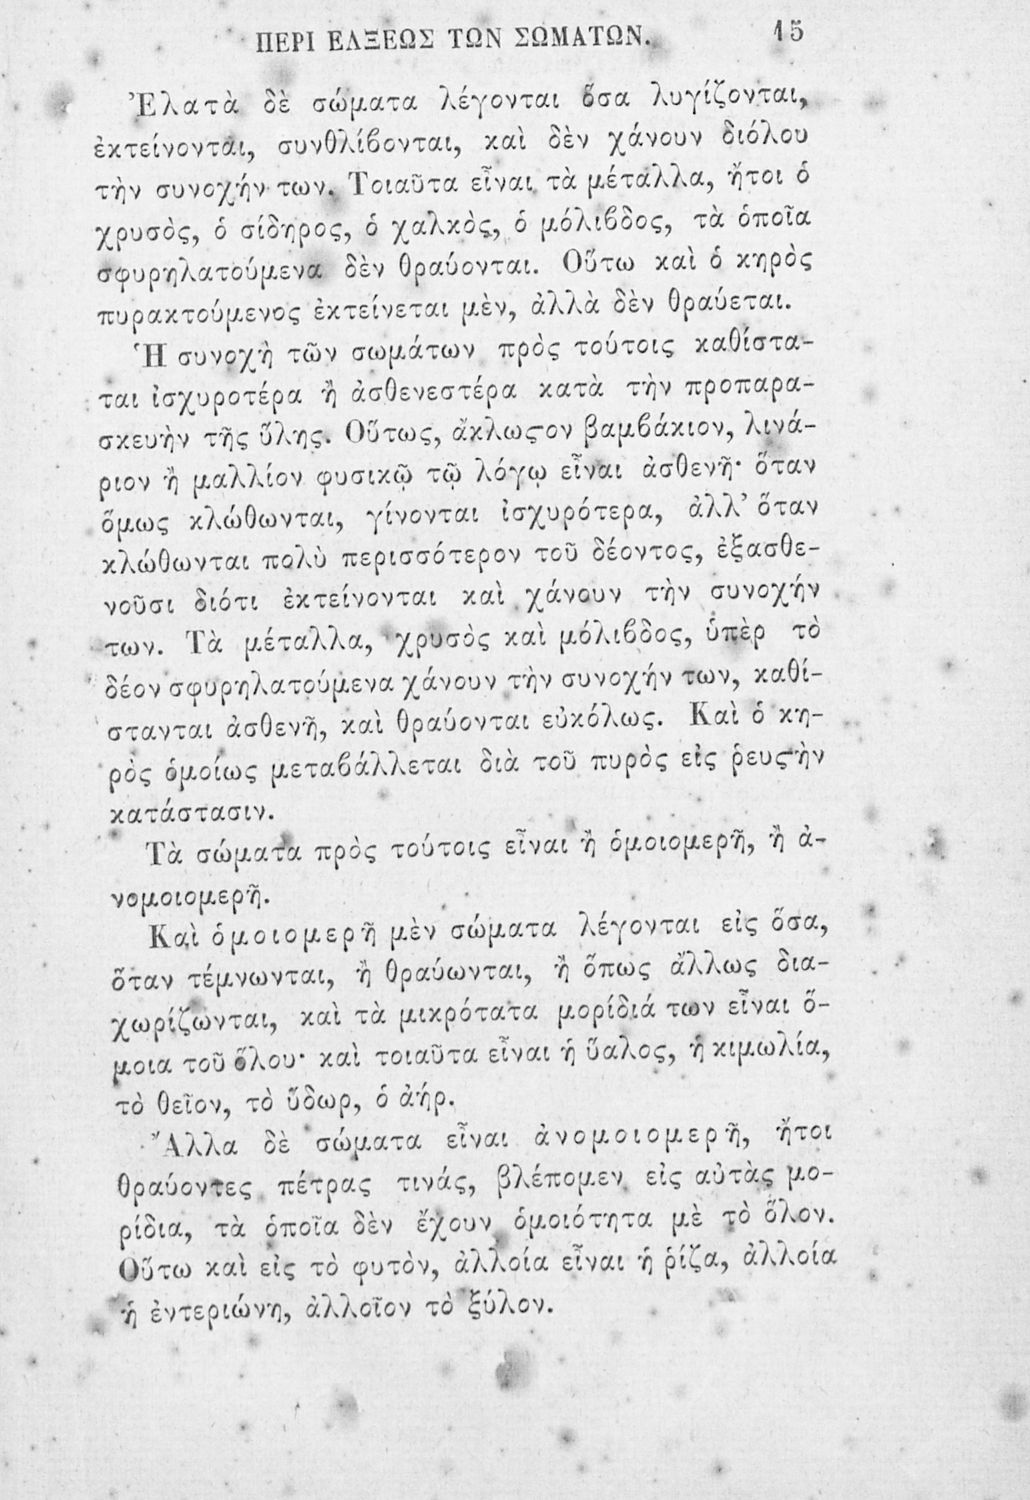 ΠΕΡΙ ΕΛΞΕΩΣ ΤΩΝ ΣΩΜΑΤΩΝ. 15
Ἐλατὰ δὲ σώματα λέγονται ὅσα λυγίζονται,
ἐκτείνονται, συνθλίβονται, καὶ δὲν χάνουν διόλου
τὴν συνοχήν των. Τοιαῦτα εἶναι τὰ μέταλλα, ἤτοι ὁ
χρυσὸς, ὁ σίδηρος, ὁ χαλκὸς, ὁ μόλιβδος, τὰ ὁποῖα
σφυρηλατούμενα δὲν θραύονται. Οὕτω καὶ ὁ κηρὸς
πυρακτούμενος ἐκτείνεται μὲν, ἀλλὰ δὲν θραύεται.
Ἡ συνοχὴ τῶν σωμάτων πρὸς τούτοις καθίστα-
ται ἰσχυροτέρα ἢ ἀσθενεστέρα κατὰ τὴν προπαρα-
σκευὴν τῆς ὕλης. Οὕτως, ἄκλωϛον βαμβάκιον, λινά-
ριον ἢ μαλλίον φυσικῷ τῷ λόγῳ εἶναι ἀσθενῆ· ὅταν
ὅμως κλώθωνται, γίνονται ἰσχυρότερα, ἀλλ’ ὅταν
κλώθωνται πολὺ περισσότερον τοῦ δέοντος, ἐξασθε-
νοῦσι διότι ἐκτείνονται καὶ χάνουν τὴν συνοχήν
των. Τὰ μέταλλα, χρυσὸς καὶ μόλιβδος, ὑπὲρ τὸ
δέον σφυρηλατούμενα χάνουν τὴν συνοχήν των, καθί-
στανται ἀσθενῆ, καὶ θραύονται εὐκόλως. Καὶ ὁ κη-
ρὸς ὁμοίως μεταβάλλεται διὰ τοῦ πυρὸς εἰς ῥευϛὴν
κατάστασιν.
Τὰ σώματα πρὸς τούτοις εἶναι ἢ ὁμοιομερῆ, ἢ ἀ-
νομοιομερῆ.
Καὶ ὁμοιομερῆ μὲν σώματα λέγονται εἰς ὅσα,
ὅταν τέμνωνται, ἢ θραύωνται, ἢ ὅπως ἄλλως δια-
χωρίζωνται, καὶ τὰ μικρότατα μορίδιά των εἶναι ὅ-
μοια τοῦ ὅλου· καὶ τοιαῦτα εἶναι ἡ ὕαλος, ἡ κιμωλία,
τὸ θεῖον, τὸ ὕδωρ, ὁ ἀήρ.
Ἄλλα δὲ σώματα εἶναι ἀνομοιομερῆ, ἤτοι
θραύοντες πέτρας τινάς, βλέπομεν εἰς αὐτὰς μο-
ρίδια, τὰ ὁποῖα δὲν ἔχουν ὁμοιότητα μὲ τὸ ὅλον.
Οὕτω καὶ εἰς τὸ φυτὸν, ἀλλοία εἶναι ἡ ῥίζα, ἀλλοία
ἡ ἐντεριώνη, ἀλλοῖον τὸ ξύλον.